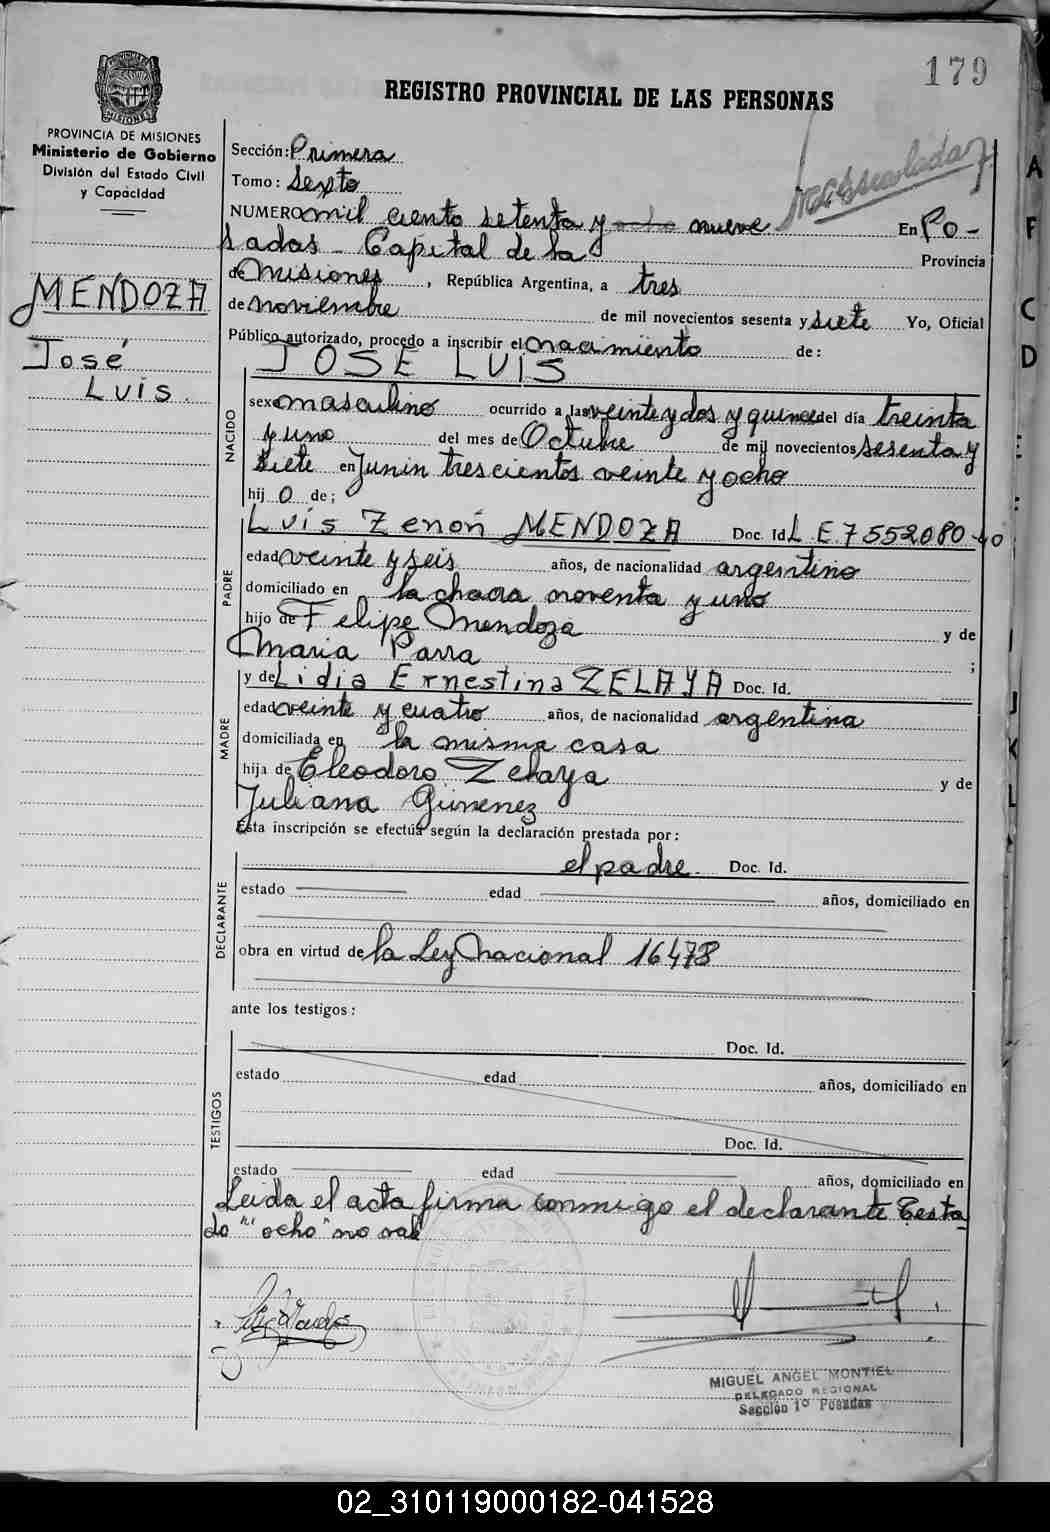 179
REGISTRO PROVINCIAL DE LAS PERSONAS
PROVINCIA DE MISIONES
Ministerio de Gobierno
División del Estado Civil
y Capacidad
MENDOZA
José
Luis.
Sección: Primera
Tomo: Sexto
NUMERO mil ciento setenta y ocho nueve En Po-
sadas - Capital de la Provincia
de Misiones, República Argentina, a tres
de noviembre de mil novecientos sesenta y siete Yo, Oficial
Público autorizado, procedo a inscribir el nacimiento de:
JOSÉ LUIS
NACIDO
sexo masculino ocurrido a las veinte y dos y quince del día treinta
y uno del mes de Octubre de mil novecientos sesenta y
siete en Junin trescientos veinte y ocho
hij o de;
PADRE
Luis Zenón MENDOZA Doc. Id. L E 7552080
edad veinte y seis años, de nacionalidad argentino
domiciliado en la chacra noventa y uno
hijo de Felipe Mendoza y de
Maria Parra ;
MADRE
y de Lidia Ernestina ZELAYA Doc. Id.
edad veinte y cuatro años, de nacionalidad argentina
domiciliada en la misma casa
hija de Eleodoro Zelaya y de
Juliana Gimenez
Esta inscripción se efectúa según la declaración prestada por:
DECLARANTE
el padre. Doc. Id.
estado edad años, domiciliado en
obra en virtud de la Ley Nacional 16478
ante los testigos:
TESTIGOS
Doc. Id.
estado edad años, domiciliado en
Doc. Id.
estado edad años, domiciliado en
Leida el acta firma conmigo el declarante Testa
do "ocho" no vale
MIGUEL ANGEL MONTIEL
DELEGADO REGIONAL
Sección 1º Posadas
A
F
C
D
J
K
L
02_310119000182-041528